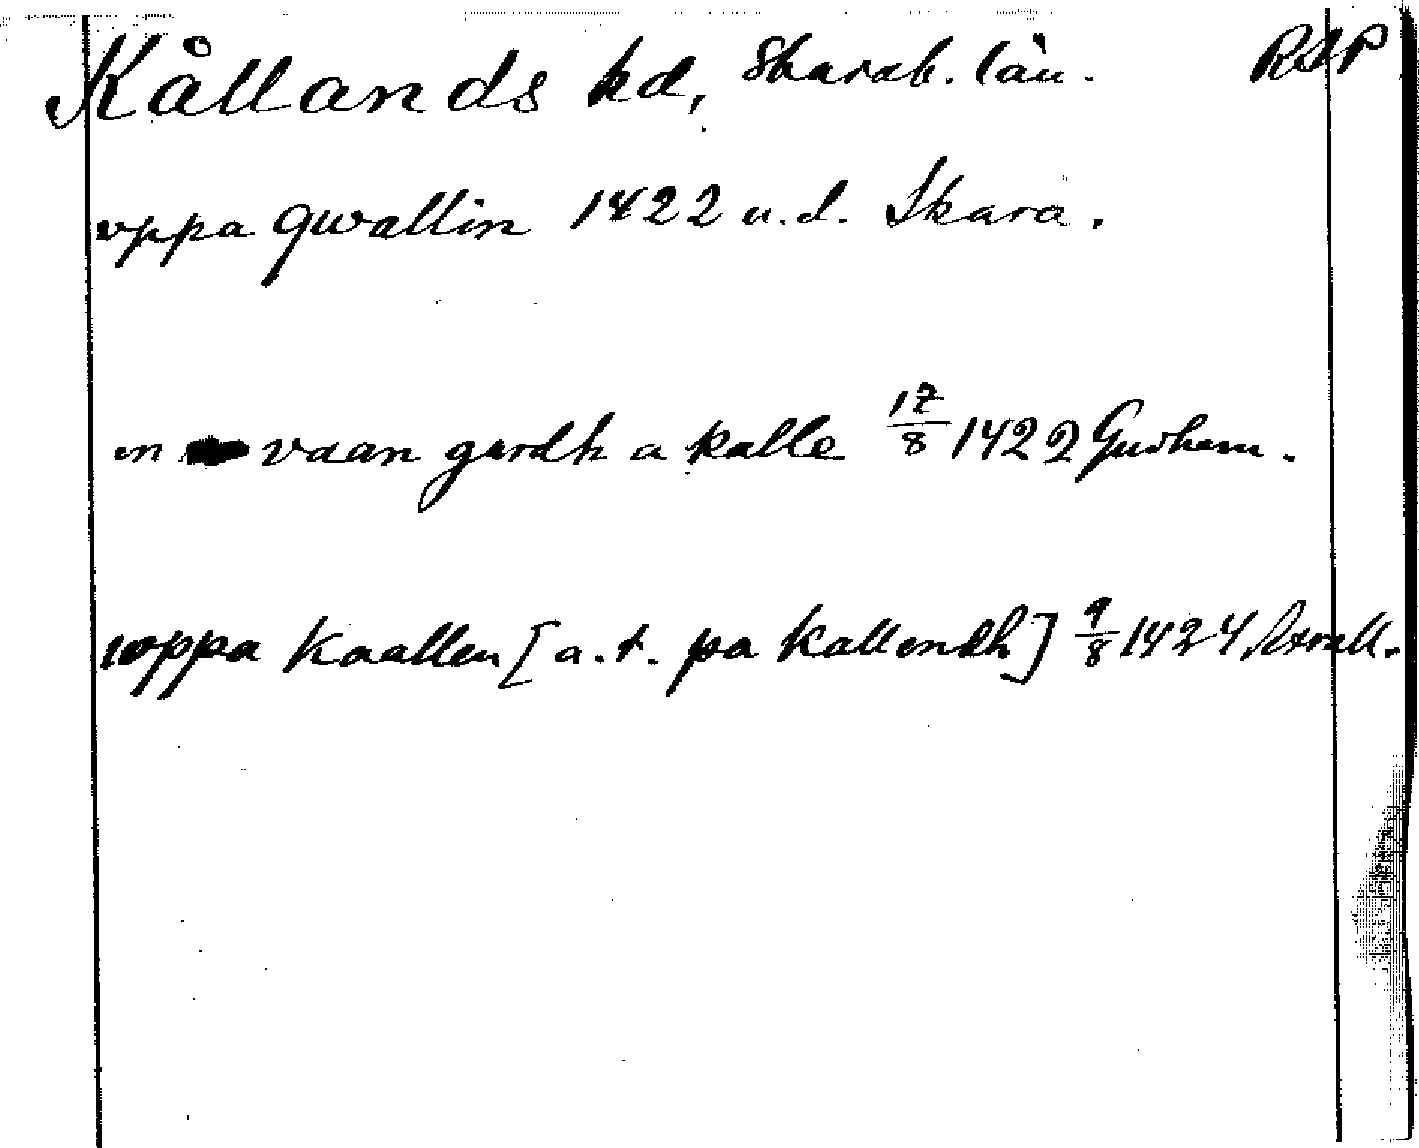 Kållands hd, Skarab. län. RAP
vppa qwallin 1422 u.d. Skara.
en vaan gardh a kalle 17/8 1422 Gudhem.
woppa Kaallen [a.t. pa kallendh] 9/8 1424